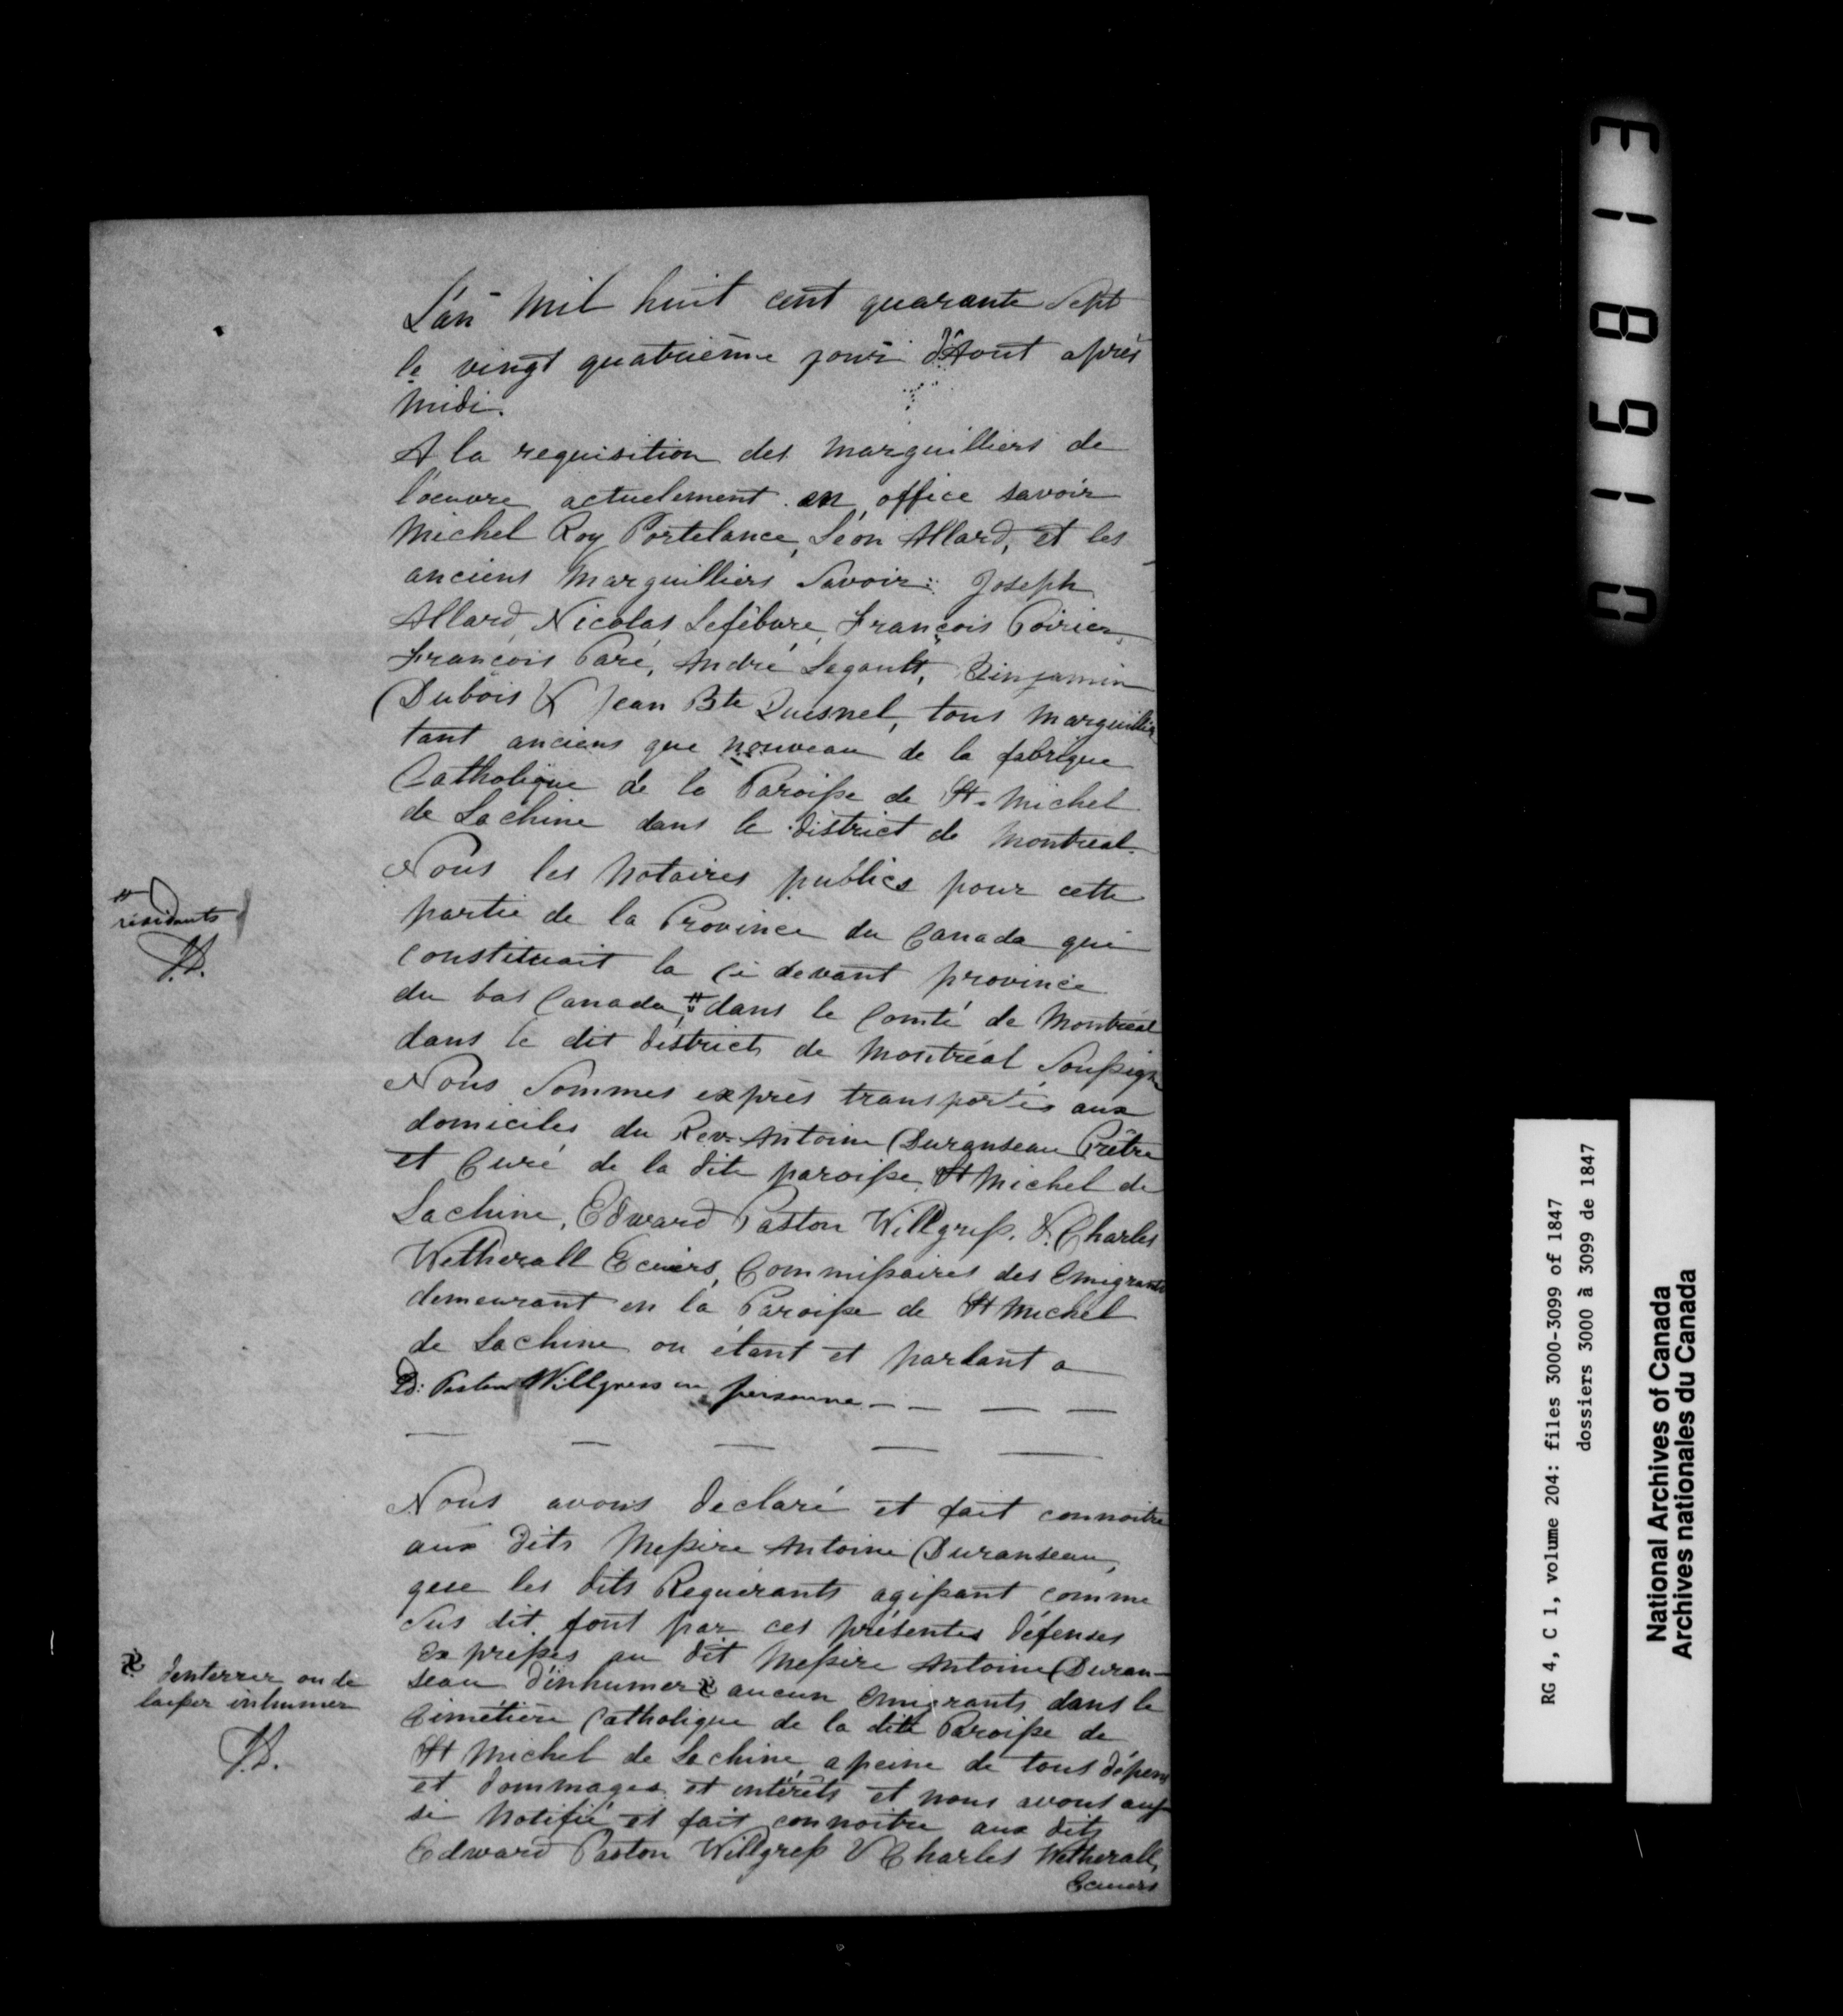 L'an mil huit cent quarante Sept
le vingt quatrième jour d'Aout après
midi.
A la requisition des marguilliers de
l'œuvre actuelement en office savoir
Michel Roy Portelance, Léon Allard, et les
anciens Marguilliers Savoir: Joseph
Allard, Nicolas Lefêbvre, François Poirier,
François Paré, André Legault, Binjamin
Dubois & Jean Bte Quesnel, tous marguilliers
tant anciens que nouveau de la fabrique
Catholique de la Paroisse de St. Michel
de Lachine dans le district de Montreal.
Nous les Notaires publics pour cette
partie de la Province du Canada qui
constituait la ci devant province
du bas Canada, # dans le Comté de Montréal
dans le dit district de Montréal Soussigné
# résidants
J.D.
Nous Sommes exprès transportés aux
domiciles du Rev. Antoine Duranseau Prêtre
et Curé de la dite paroisse St Michel de
Lachine, Edward Paston Willgress, & Charles
Wetherall Ecuiers, Commissaires des Emigrants
demeurant en la Paroisse de St Michel
de Lachine ou étant et parlant a
Ed: Paston Willgress en personne — — — —
— — — — —
Nous avons declaré et fait connoitre
aux dits Messire Antoine Duranseau,
que les dits Requérants agissant comme
Sus dit, font par ces présentes défenses
expresses au dit Messire Antoine Duran-
seau d'inhumer & aucun Emigrants dans le
& denterrer ou de
laisser inhumer
J.D.
Cimétière Catholique de la dite Paroisse de
St Michel de Lachine, a peine de tous dépens
et dommages et intérêts et nous avons aus-
si Notifié et fait connoitre aux dits
Edward Paston Willgress & Charles Wetherall,
Ecuiers
0 1 6 8 1 3
RG 4, C 1, volume 204: files 3000-3099 of 1847
dossiers 3000 à 3099 de 1847
National Archives of Canada
Archives nationales du Canada